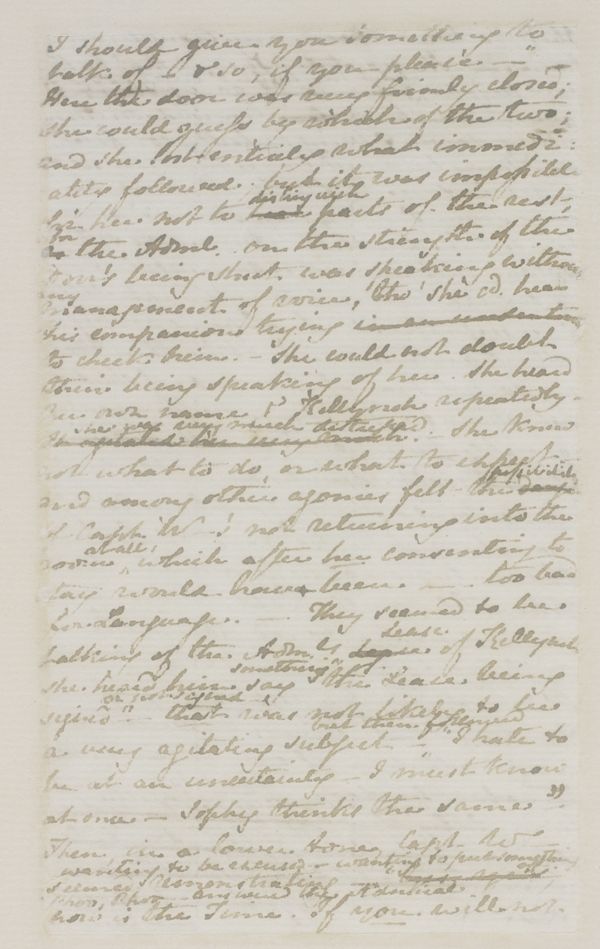 I should give you something to
talk of — & so, if you please —"
Here the door was very firmly closed;
she could guess by which of the two;
and she lost entirely what immedi:
:ately followed; but it was impossible
distinguish
for her not to hear parts of the rest,
for
the Adml. on the strength of the
Door's being shut was speaking without
any
management of voice, tho' she cd. hear
his companion trying
to check him. — She could not doubt
their being speaking of her. She heard
her own name & Kellynch repeatedly —
she was very much disturbed
agitated her very much. She knew
not what to do, or what to expect —
possibility
and among other agonies felt the
of Capt. W—'s not returning into the
at all,
room which after her consenting to
stay would have been — too bad
for Language. — They seemed to be
Lease
talking of the Adm:ls of Kellynch
something
she heard him say "the Lease being
or not signed
signed" — that was not likely to be
but then followed
a very agitating subject — "I hate to
be at an uncertainty — I must know
at once — Sophy thinks the same".
Then in a lower tone, Capt. W—
wanting to be excused — wanting to put something
seemed remonstrating
answered the Admiral
now is the Time. If you will not